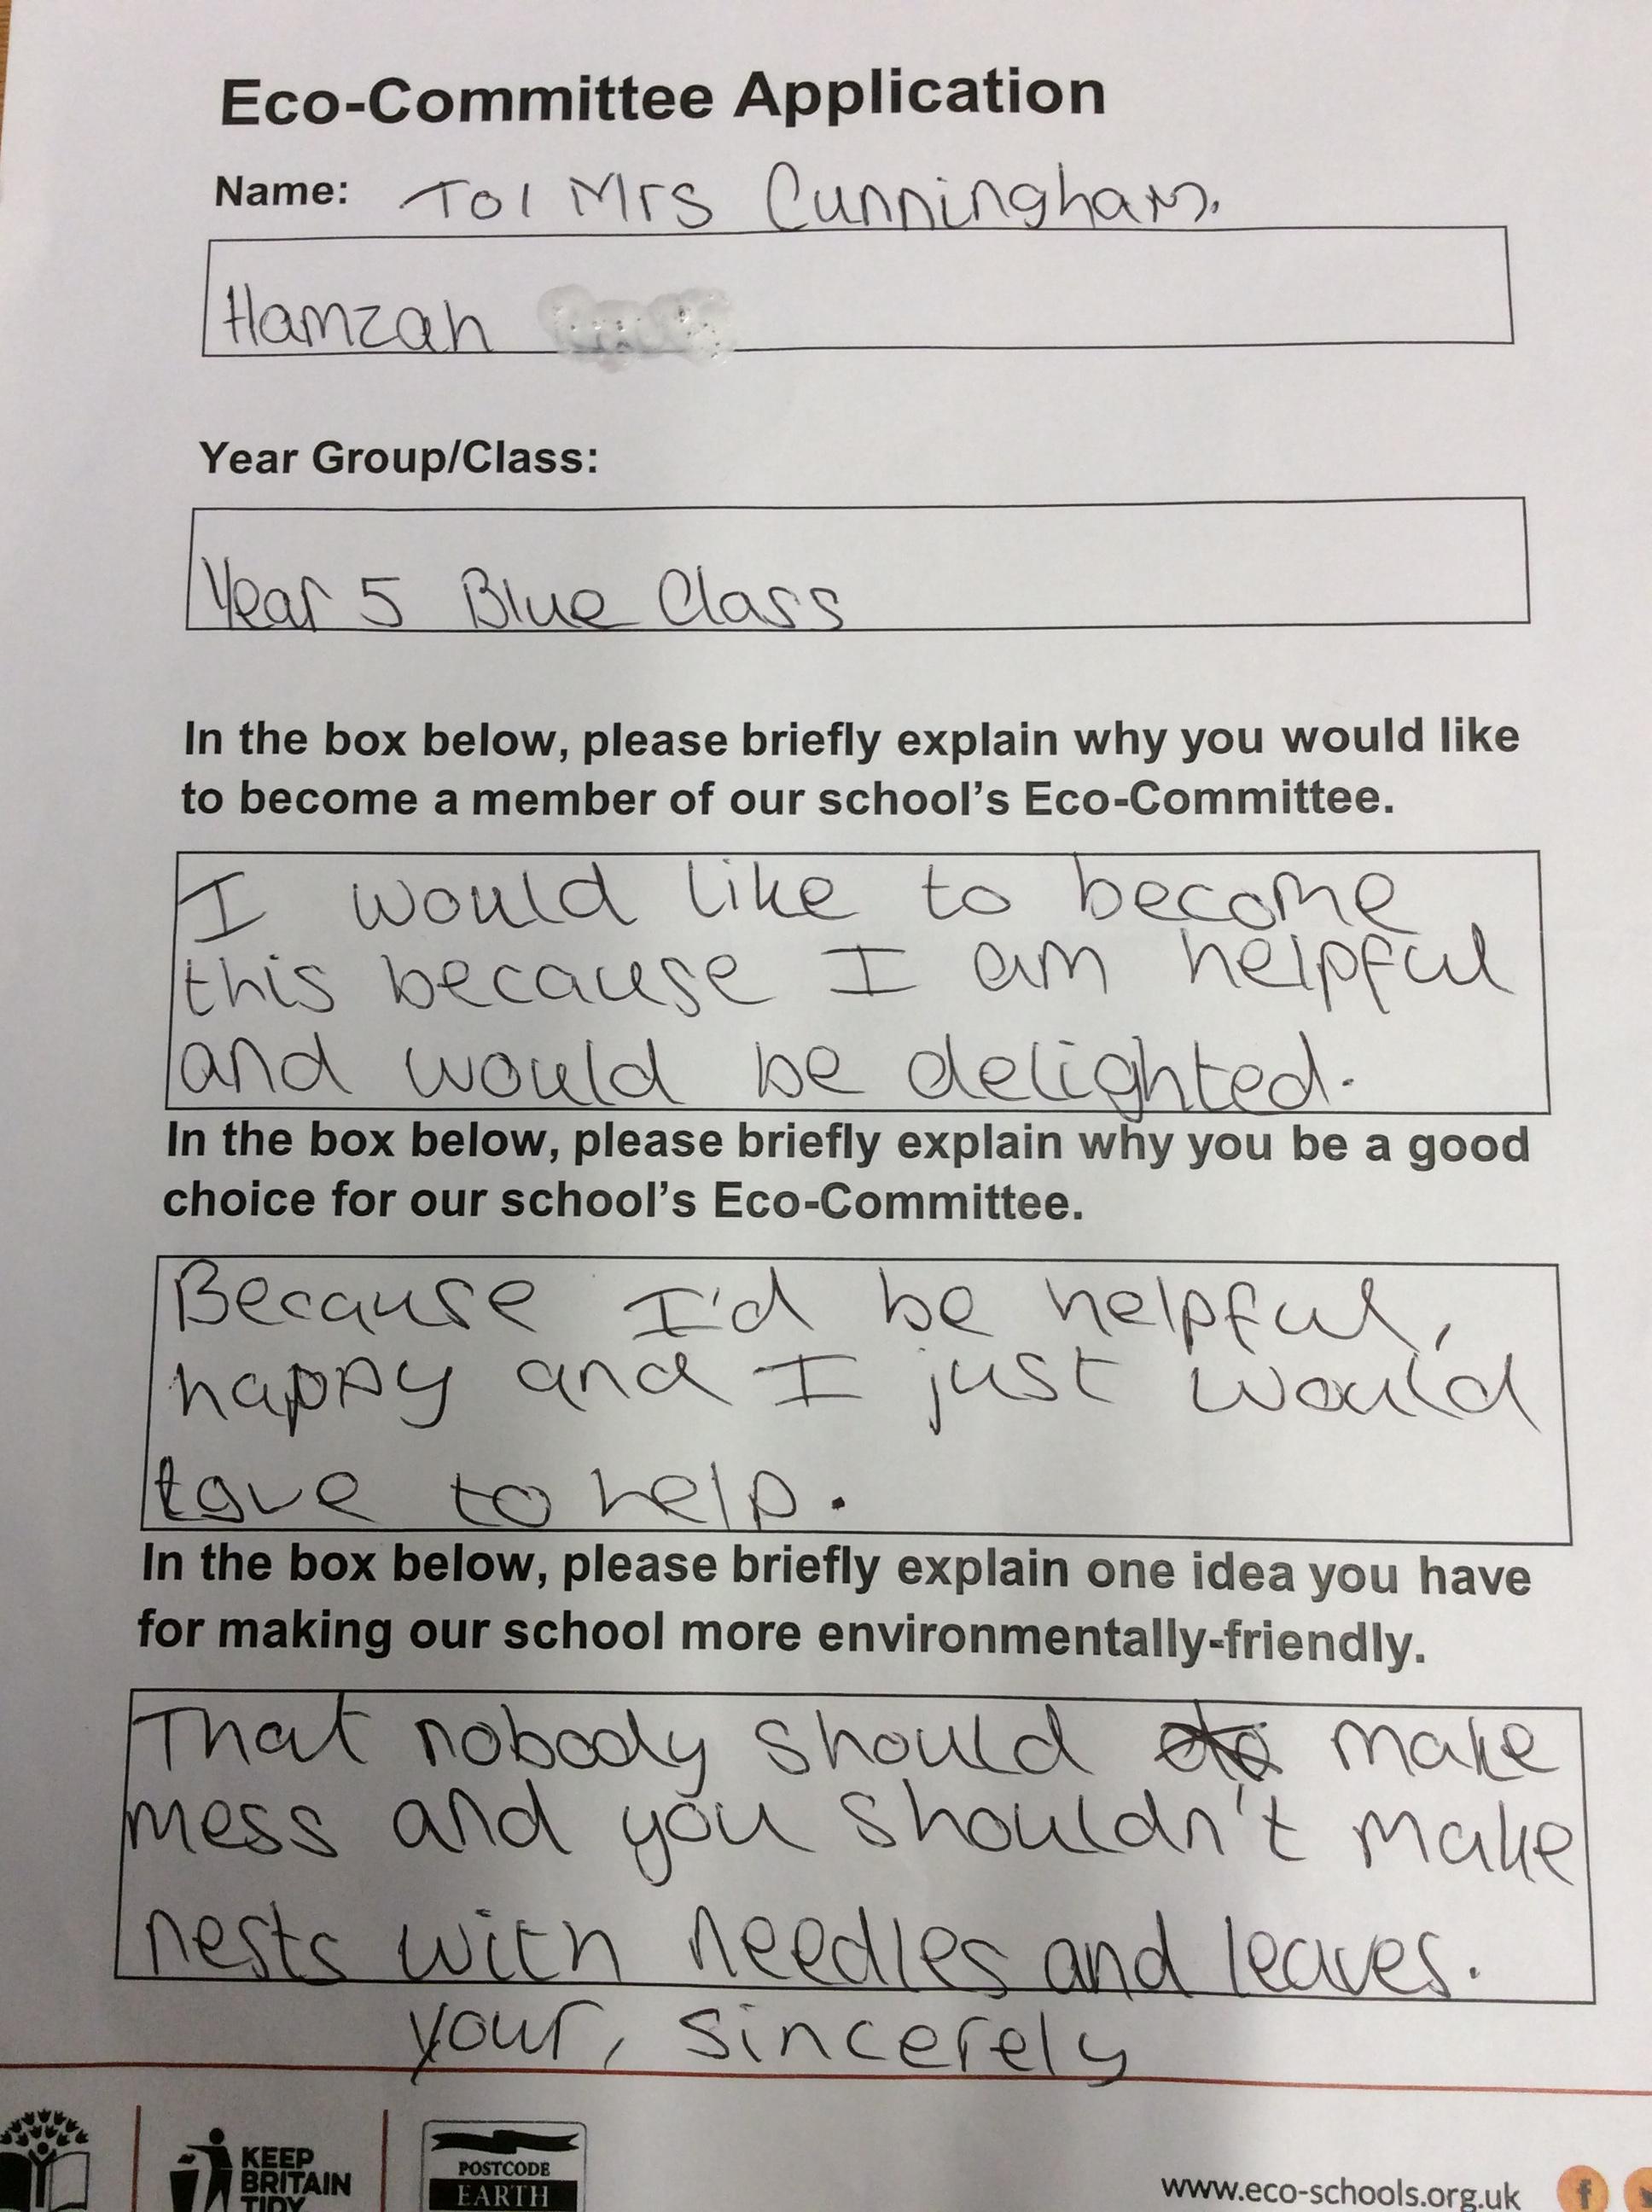 Eco-Committee Application
Name: To/ Mrs Cunningham.
Hamzah
Year Group/Class:
Year 5 Blue Class
In the box below, please briefly explain why you would like
to become a member of our school's Eco-Committee.
I would like to become
this because I am helpful
and would be delighted.
In the box below, please briefly explain why you be a good
choice for our school's Eco-Committee.
Because I'd be helpful,
happy and I just would
love to help.
In the box below, please briefly explain one idea you have
for making our school more environmentally-friendly.
That nobody should make
mess and you shouldn't make
nests with needles and leaves.
your, sincerely
KEEP
BRITAIN
TIDY
POSTCODE
EARTH
www.eco-schools.org.uk
f